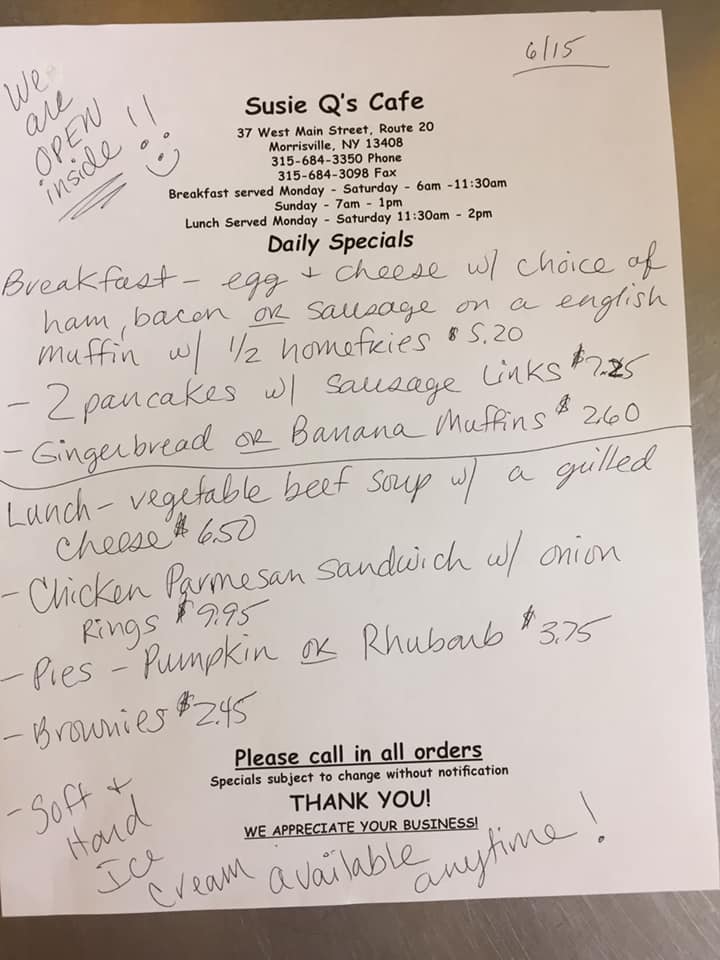 6/15
We
are
OPEN
inside!!
Susie Q's Cafe
37 West Main Street, Route 20
Morrisville, NY 13408
315-684-3350 Phone
315-684-3098 Fax
Breakfast served Monday - Saturday - 6am -11:30am
Sunday - 7am - 1pm
Lunch Served Monday - Saturday 11:30am - 2pm
Daily Specials
Breakfast - egg + cheese w/ choice of
ham, bacon OR sausage on a english
muffin w/ 1/2 homefries $5.20
- 2 pancakes w/ sausage links $7.25
- Gingerbread OR Banana Muffins $2.60
Lunch - vegetable beef soup w/ a grilled
cheese $6.50
- Chicken Parmesan sandwich w/ onion
Rings $9.95
- Pies - Pumpkin OR Rhubarb $3.75
- Brownies $2.45
Please call in all orders
Specials subject to change without notification
THANK YOU!
WE APPRECIATE YOUR BUSINESS!
- Soft +
Hard
Ice
Cream available anytime!